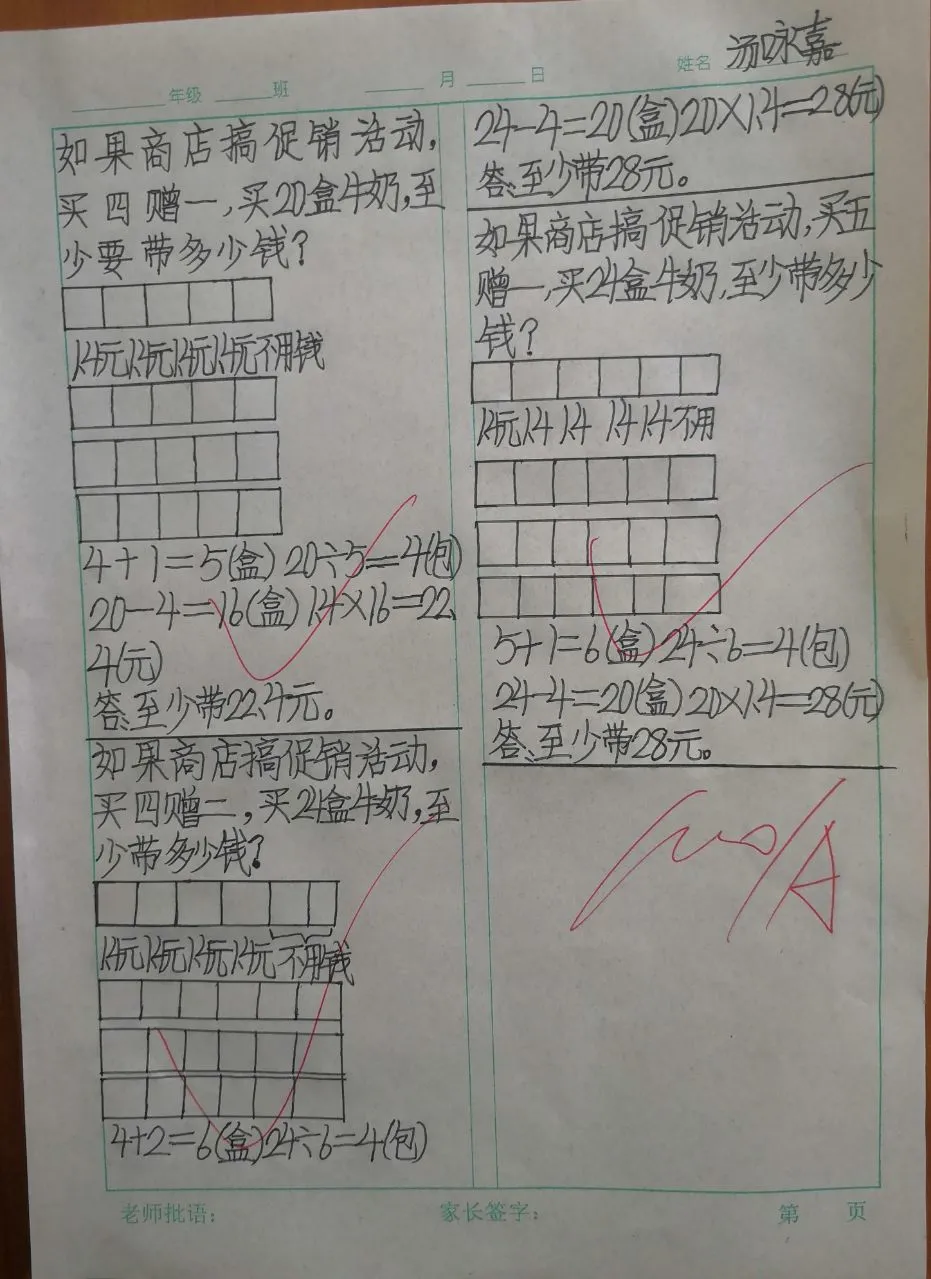 年级 班 月 日 姓名 汤咏嘉
如果商店搞促销活动,
买四赠一,买20盒牛奶,至
少要带多少钱?
1.4元1.4元1.4元1.4元不用钱
4+1=5(盒) 20÷5=4(包)
20-4=16(盒) 1.4×16=22.
4(元)
答:至少带22.4元。
如果商店搞促销活动,
买四赠二,买24盒牛奶,至
少带多少钱?
1.4元1.4元1.4元1.4元不用钱
4+2=6(盒)24÷6=4(包)
24-4=20(盒)20×1.4=28(元)
答:至少带28元。
如果商店搞促销活动,买五
赠一,买24盒牛奶,至少带多少
钱?
1.4元1.4 1.4 1.4 1.4不用
5+1=6(盒)24÷6=4(包)
24-4=20(盒)20×1.4=28(元)
答:至少带28元。
A
老师批语: 家长签字: 第 页